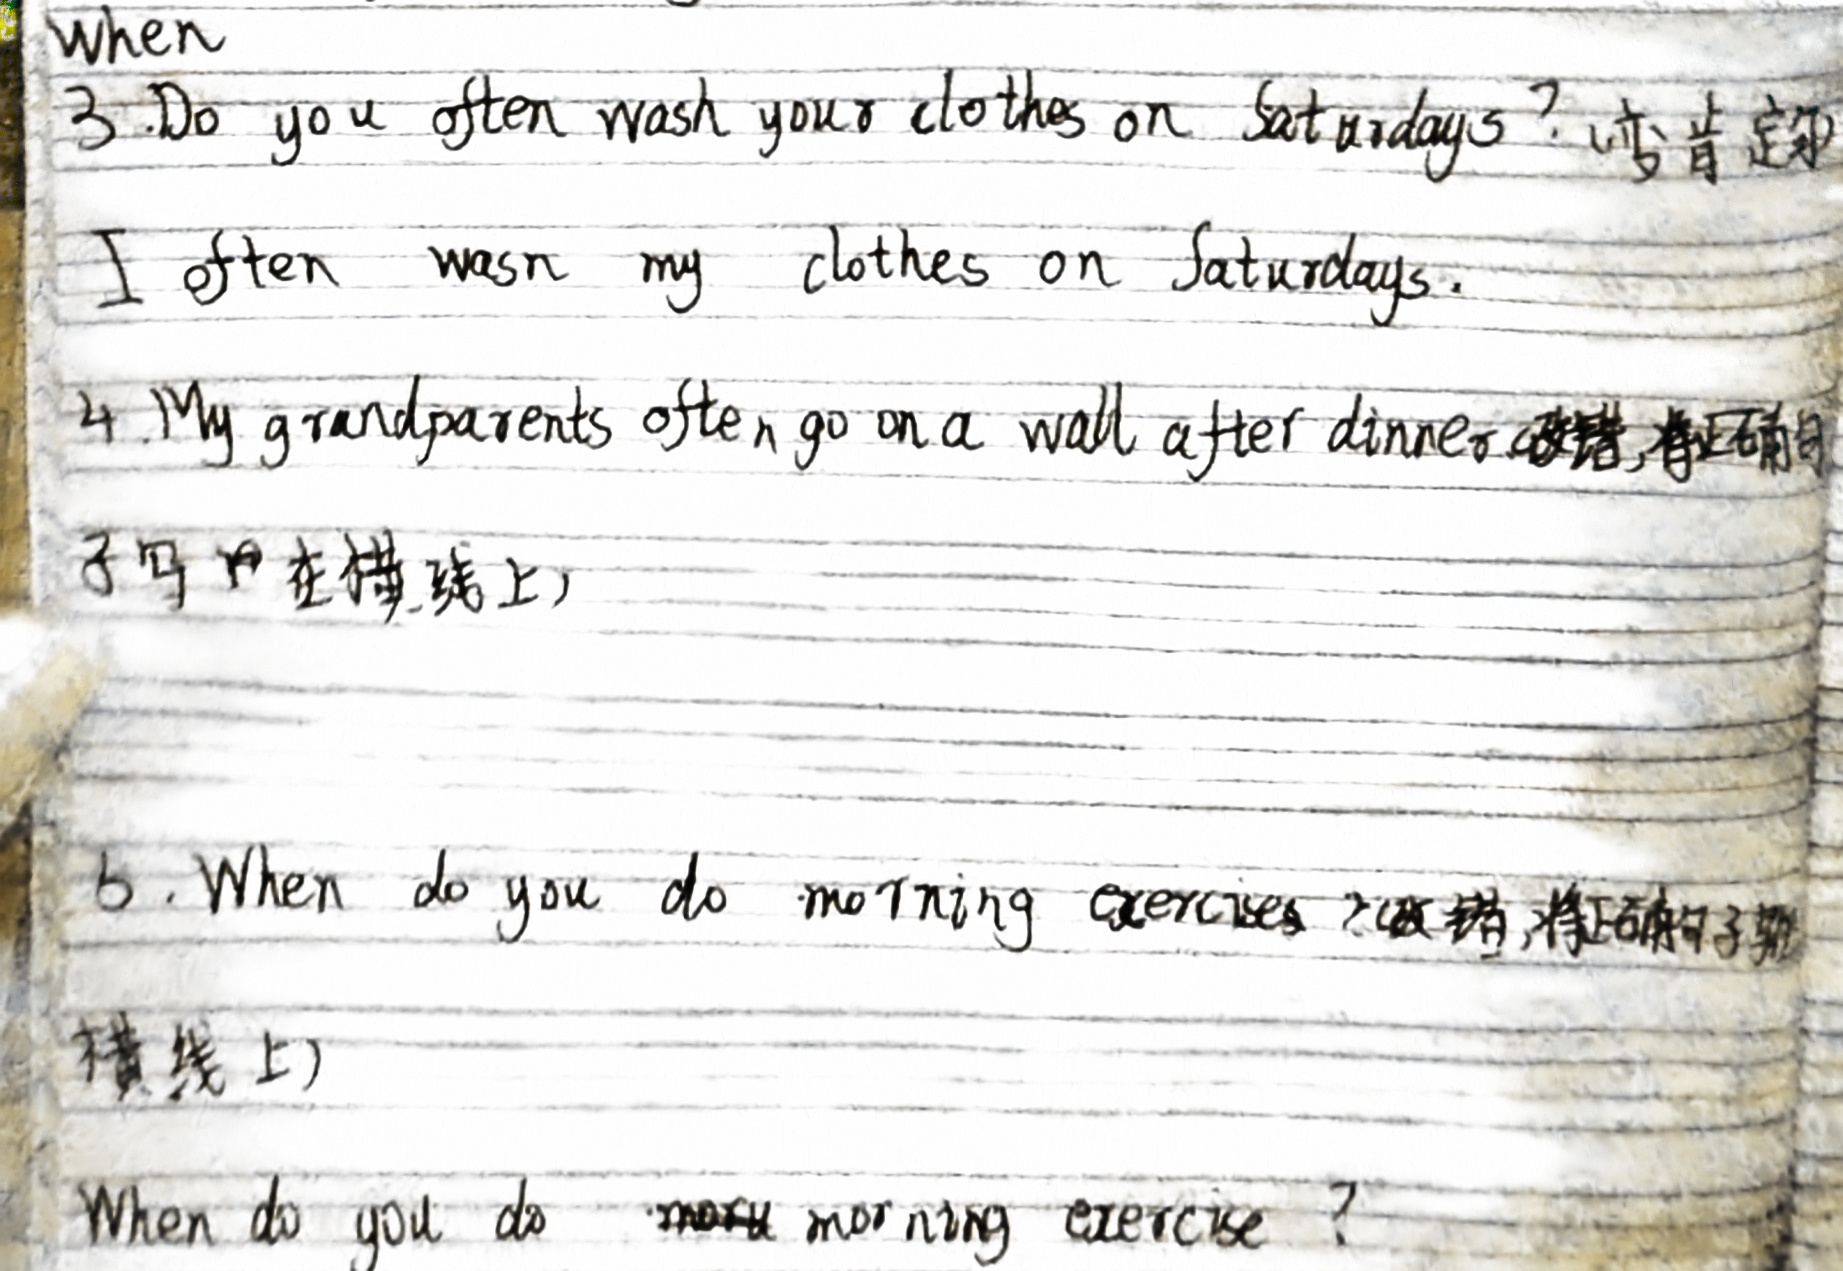 When
3.Do you often wash your clothes on Saturdays?(变肯定句
I often wasn my clothes on Saturdays.
4.My grandparents often go on a wall after dinner.(改错,将正确句
子写在横线上)
6.When do you do morning exercises?(改错,将正确句子写在
横线上)
When do you do morning exercise?